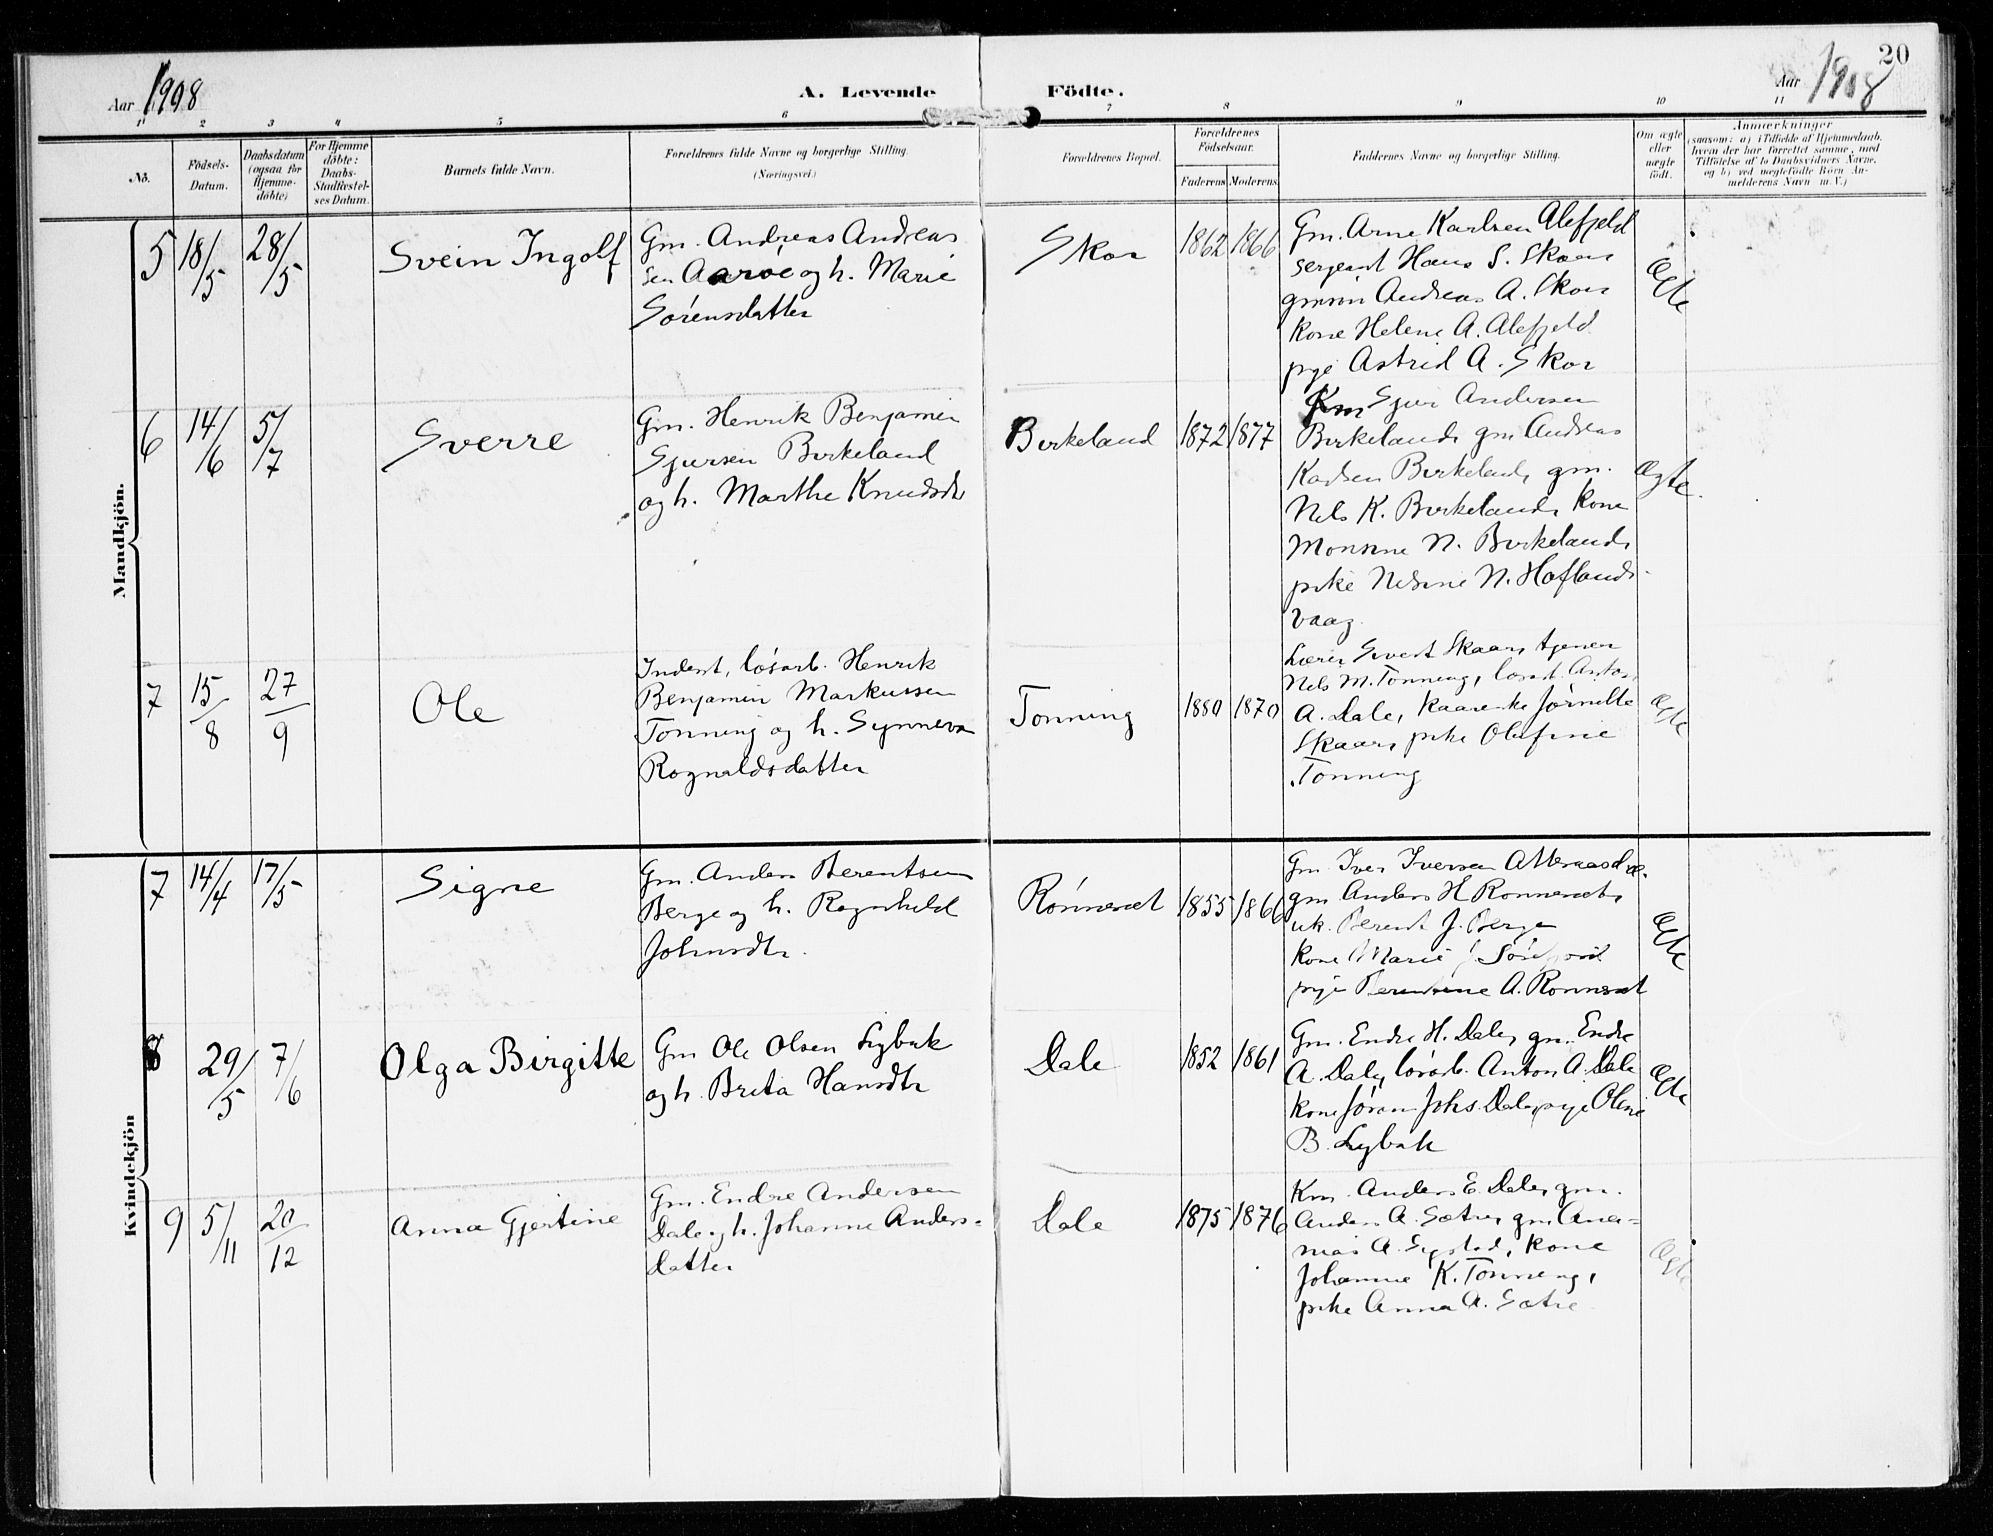 20
Aar 1908
A. Levende Födte.
Aar 1908
1 2 3 4 5 6 7 8 9 10 11
No.
Födsels-
Datum.
Daabsdatum
(ogsaa for
Hjemme-
döbte)
For Hjemme
döbte:
Daabs-
Stadfæstel-
ses Datum.
Barnets fulde Navn.
Forældrenes fulde Navne og borgerlige Stilling.
(Næringsvei.)
Forældrenes Bopæl.
Forældrenes
Födselsaar.
Faderens Moderens
Faddernes Navne og borgerlige Stilling.
Om ægte
eller
uægte
födt.
Anmærkninger
(saasom: a) i Tilfælde af Hjemmedaab,
hvem der har forrettet samme, med
Tilföielse af to Daabsvidners Navne,
og b) ved uægtefödte Börn An-
melderens Navn m. V.)
Mandkjön.
5 18/5 28/5 Svein Ingolf
Gm. Andreas Andreas
sen Aaröe og h. Marie
Sörensdatter
Skor 1862 1866
Gm. Arne Karlsen Alefjeld
sergeant Hans S. Skaar
gmsön Andreas A. Skor
kone Helene A. Alefjeld
pige Astrid A. Skor
Ægte
6 14/6 5/7 Sverre
Gm. Henrik Benjamin
Sjursen Birkeland
og h. Marthe Knudsdr
Birkeland 1872 1877
Km Sjur Andersen
Birkeland, gm Andreas
Karlsen Birkeland, gm.
Nils K. Birkeland, kone
Monsine N. Birkeland,
pike Nilsine N. Hoflands-
vaag.
Ægte.
7 15/8 27/9 Ole
Inderst, lösarb. Henrik
Benjamin Markussen
Tonning og h. Synneva
Rognaldsdatter
Tonning 1880 1870
Lærer Sivert Skaar, tjener
Nils M. Tonning, lösarb. Anton
A. Dale, Jörnette
Skaar, pike Olufine
Tonning
Ægte
Kvindekjön
7 14/4 17/5 Signe
Gm. Anders Berentsen
Berge og h. Ragnhild
Johnsdtr.
Rönneset 1855 1866
Gm Iver Iversen
gm Anders H Ronneset,
uk. Berent J. Berge
kone Marie
pige A. Ronneset
Ægte
8 29/5 7/6 Olga Birgitte
Gm Ole Olsen Lybak
og h. Brita Hansdtr
Dale 1852 1861
Gm. Endre H. Dale, gm. Endre
A. Dale, lösarb. Anton A. Dale
kone Jöran Johs. Dale, pige Oline
B. Lybak
Ægte
9 5/11 20/12 Anna Gjertine
Gm. Endre Andersen
Dale og h. Johanne Anders-
datter
Dale 1875 1876
Km. Anders E. Dale, gm.
Anders A. Sætre, gm Ana-
nias A. Systad, kone
Johanne K. Tonning,
pike Anna A. Sætre
Ægte